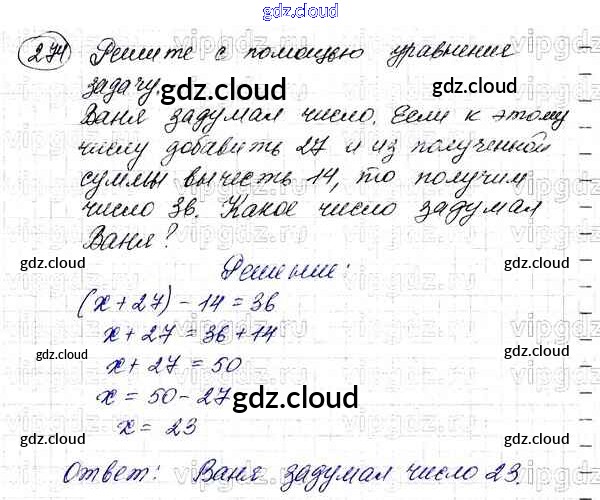 gdz.cloud
274 Решите с помощью уравнения
задачу
gdz.cloud gdz.cloud
Ваня задумал число. Если к этому
числу добавить 27 и из полученной
суммы вычесть 14, то получим
число 36. Какое число задумал
Ваня?
gdz.cloud gdz.cloud
Решение:
(x + 27) - 14 = 36
x + 27 = 36 + 14
gdz.cloud gdz.cloud
x + 27 = 50
x = 50 - 27
gdz.cloud
x = 23
gdz.cloud gdz.cloud
Ответ: Ваня задумал число 23.